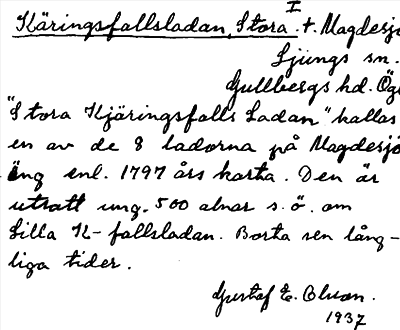 I
Käringsfallsladan, Stora. t. Magdesjö
Ljungs sn.
Gullbergs hd. Ög
"Stora Kjäringsfalls Ladan" kallas
en av de 8 ladorna på Magdesjö
äng enl. 1797 års karta. Den är
utsatt ung. 500 alnar s.ö. om
Lilla K-fallsladan. Borta sen lång-
liga tider.
Gustaf E. Olson.
1937